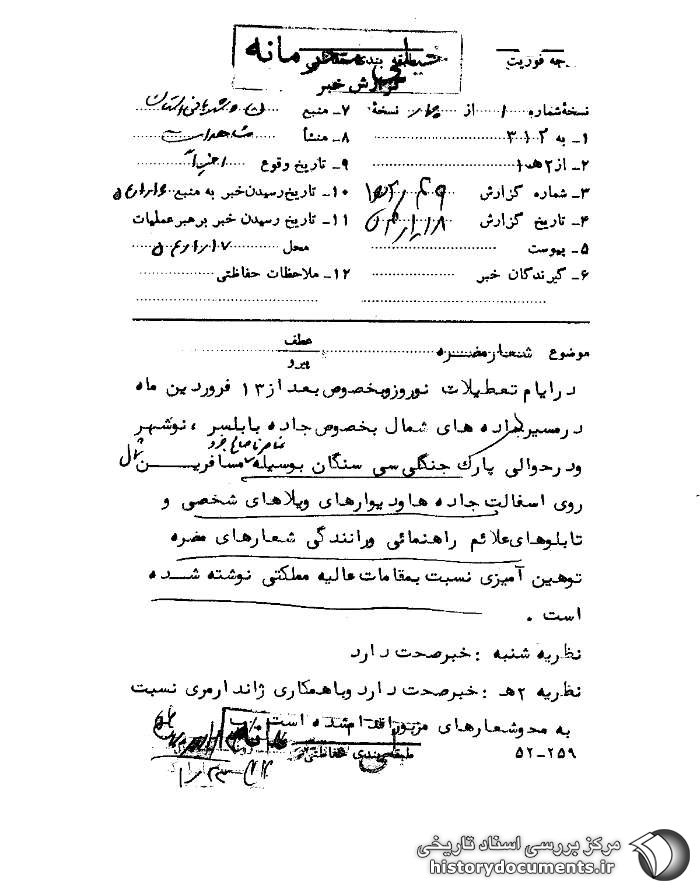 خیلی محرمانه
طبقه بندی حفاظتی
گزارش خبر
جه فوریت
نسخهٔ شماره ۱ از چهار نسخهٔ
۱ـ به ۳۱۲
۲ـ از ۲ه‍۱
۳ـ شماره گزارش
۴ـ تاریخ گزارش
۵ـ پیوست
۶ـ گیرندگان خبر
۷ـ منبع
۸ـ منشأ مشاهدات
۹ـ تاریخ وقوع اخیراً
۱۰ـ تاریخ رسیدن خبر به منبع
۱۱ـ تاریخ رسیدن خبر برهبر عملیات
محل
۱۲ـ ملاحظات حفاظتی
عطف
پیرو
موضوع شعار مضره
در ایام تعطیلات نوروز و بخصوص بعد از ۱۳ فروردین ماه
در مسیر جاده های شمال بخصوص جاده بابلسر ، نوشهر
و در حوالی پارک جنگلی سی سنگان بوسیله مسافرین شمال
روی اسفالت جاده ها و دیوارهای ویلاهای شخصی و
تابلوهای علائم راهنمائی و رانندگی شعارهای مضره
توهین آمیزی نسبت بمقامات عالیه مملکتی نوشته شده
است .
نظریه شنبه : خبر صحت دارد
نظریه ۲ه‍ : خبر صحت دارد و با همکاری ژاندارمری نسبت
به محو شعارهای مزبور اقدام شده است
طبقه بندی حفاظتی
۵۲-۲۵۹
مرکز بررسی اسناد تاریخی
historydocuments.ir